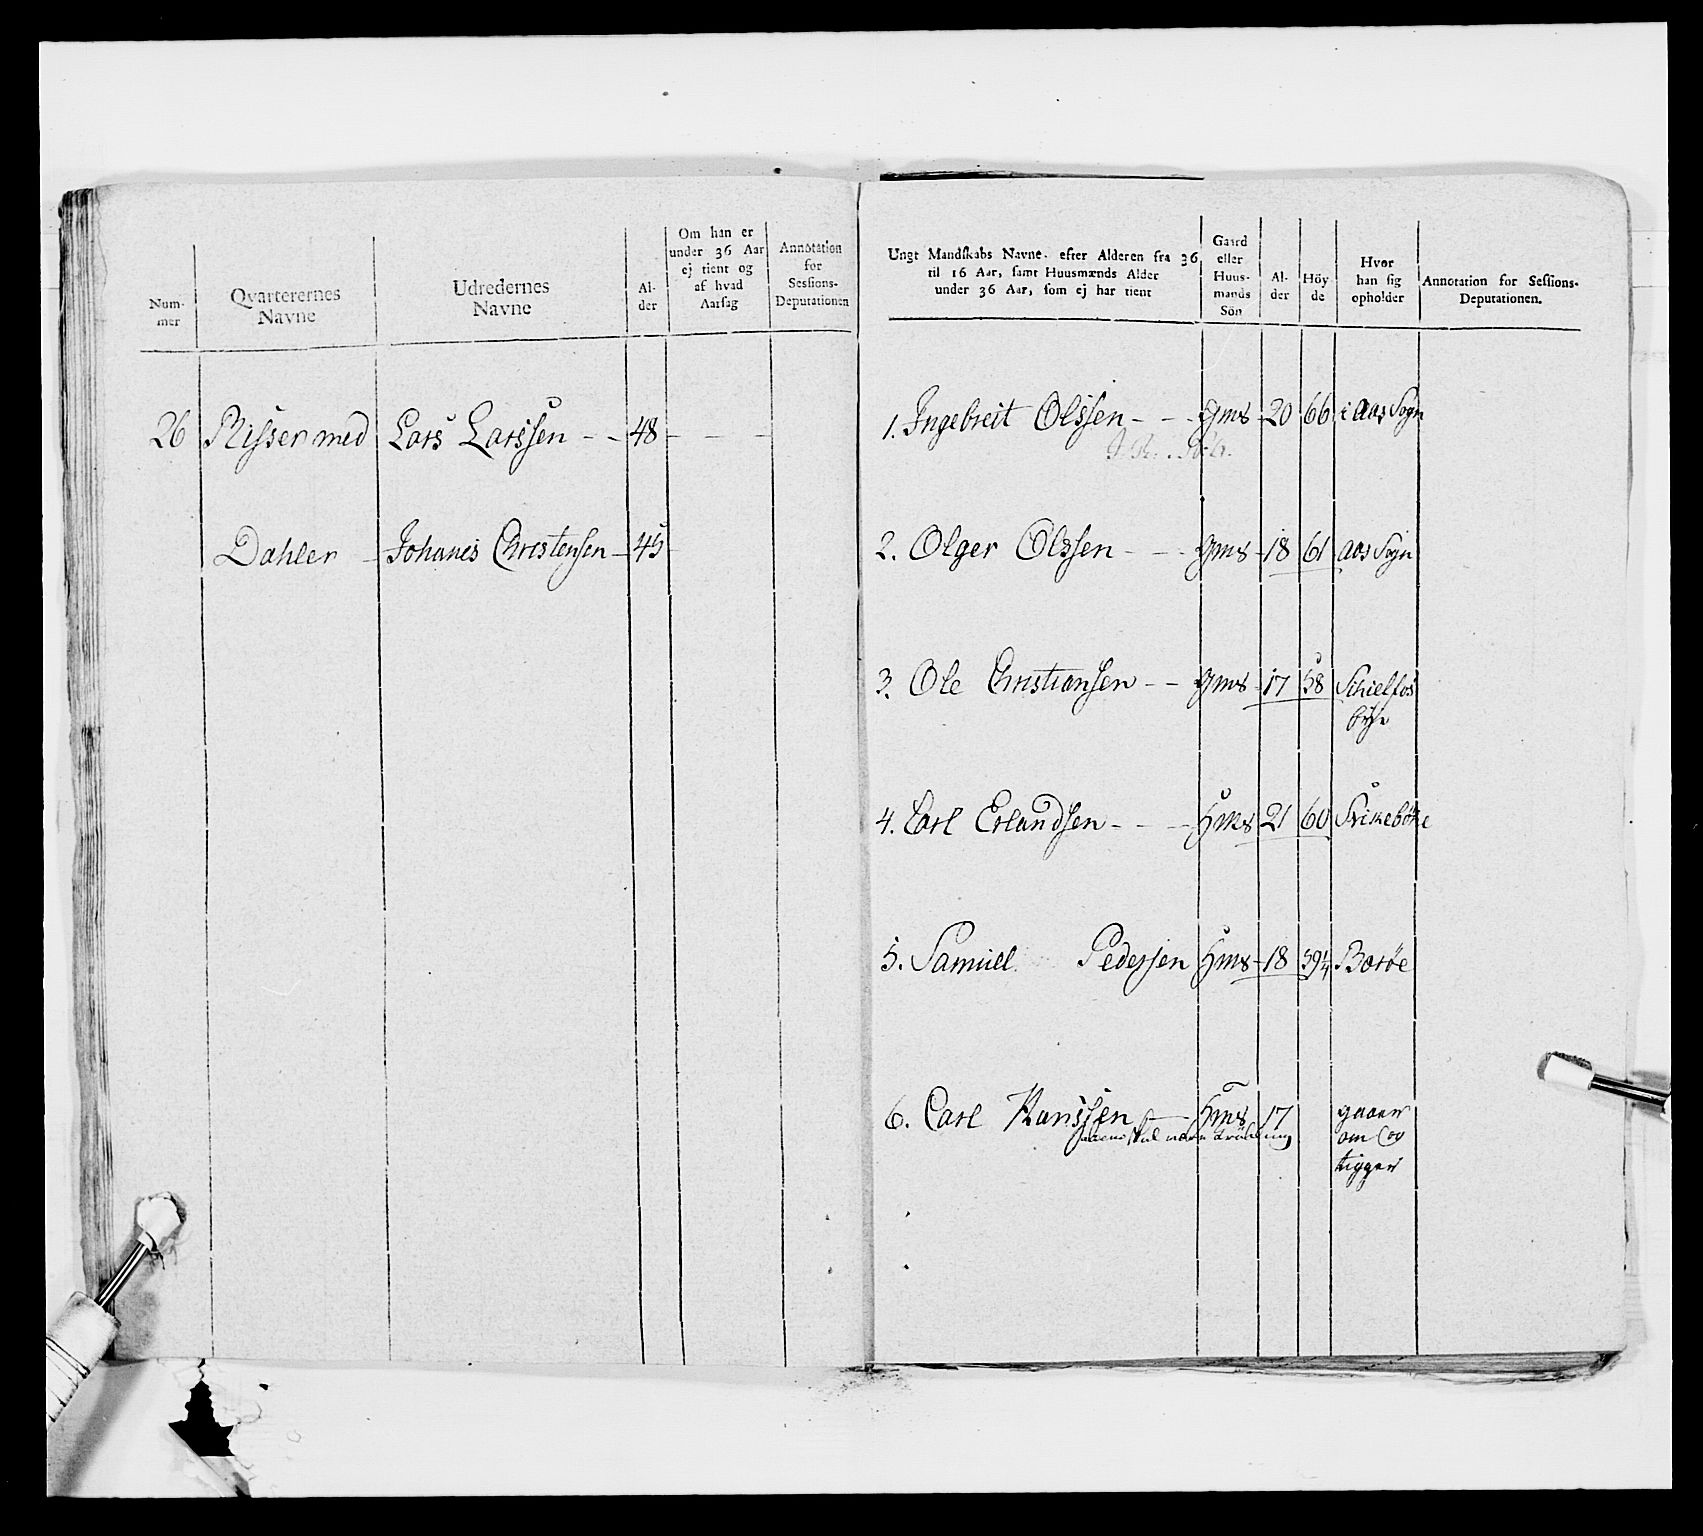 Num-
mer
Qvarterernes
Navne
Udredernes
Navne
Al-
der
Om han er
under 36 Aar
ej tient og
af hvad
Aarsag
Annotation
for
Sessions-
Deputationen
26 Risser med Lars Larssen - - 48 - - -
Dahler - Johanes Christensen - 45
Ungt Mandskabs Navne. efter Alderen fra 36
til 16 Aar, samt Huusmænds Alder
under 36 Aar, som ej har tient
Gaard
eller
Huus-
mands
Sön
Al-
der
Höy-
de
Hvor
han sig
opholder
Annotation for Sessions-
Deputationen.
1. Ingebreit Olssen - - - gms - 20 66 i Aas Sogn
2. Olger Olssen - - - gms - 18 61 Aas Sogn
3. Ole Christiansen - - gms - 17 58 Schielfos
4. Carl Erlandsen - - - Hms 21 60
5. Samuel Pedersen Hms - 18 59 1/4 Boröe
6. Carl Hanssen - - Hms 17 gaaer
om og
tigger